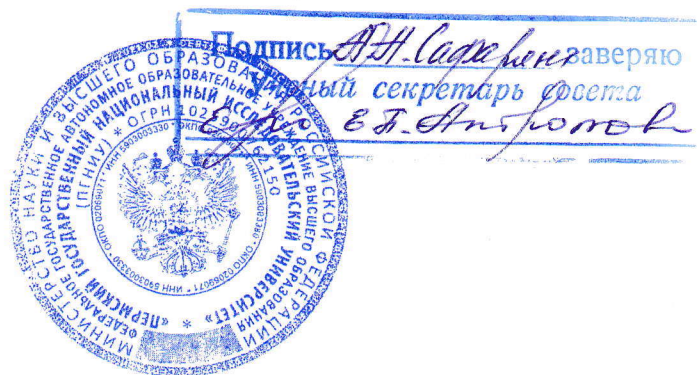 Подпись А.Н. заверяю
Ученый секретарь совета
Е.П. Антропова
МИНИСТЕРСТВО НАУКИ И ВЫСШЕГО ОБРАЗОВАНИЯ РОССИЙСКОЙ ФЕДЕРАЦИИ
ФЕДЕРАЛЬНОЕ ГОСУДАРСТВЕННОЕ АВТОНОМНОЕ ОБРАЗОВАТЕЛЬНОЕ УЧРЕЖДЕНИЕ ВЫСШЕГО ОБРАЗОВАНИЯ
«ПЕРМСКИЙ ГОСУДАРСТВЕННЫЙ НАЦИОНАЛЬНЫЙ ИССЛЕДОВАТЕЛЬСКИЙ УНИВЕРСИТЕТ»
(ПГНИУ) * ОГРН
ОКПО 02069071 * ИНН 5903003330